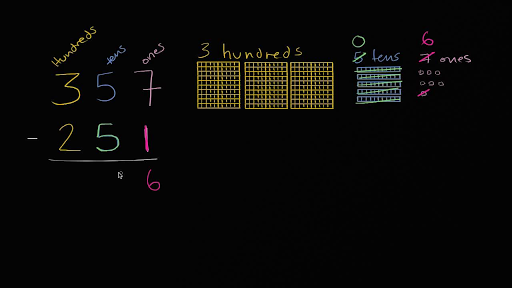 Hundreds tens ones
357
- 251
6
3 hundreds
0
5 tens
6
7 ones